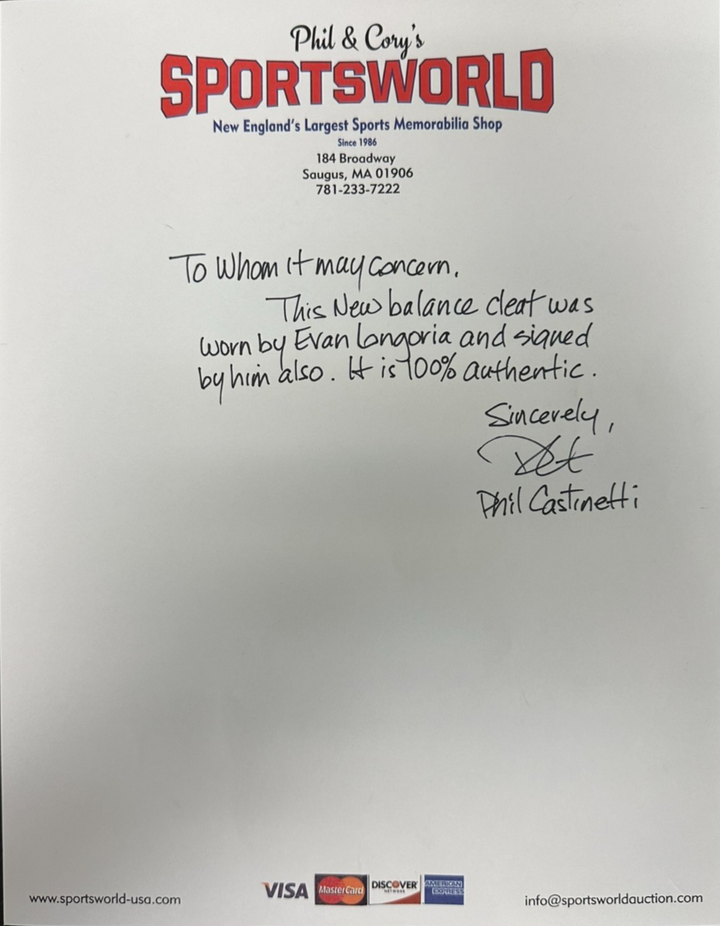 Phil & Cory's
SPORTSWORLD
New England's Largest Sports Memorabilia Shop
Since 1986
184 Broadway
Saugus, MA 01906
781-233-7222
To Whom It may concern,
This New balance cleat was
worn by Evan Longoria and signed
by him also. It is 100% authentic.
Sincerely,
Phil Castinetti
VISA MasterCard DISCOVER NETWORK AMERICAN EXPRESS
www.sportsworld-usa.com
info@sportsworldauction.com